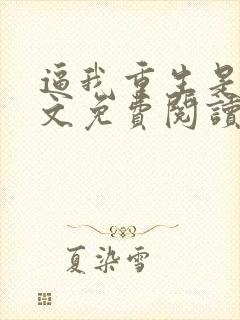 逼我重生是
文免費閱讀
夏染雪